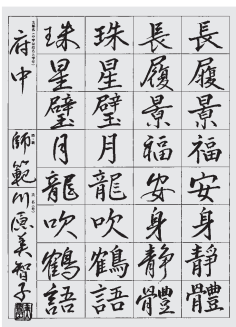 長履景福安身静體
長履景福安身静體
珠星璧月龍吹鶴語
珠星璧月龍吹鶴語
府中 師範 川 美智子